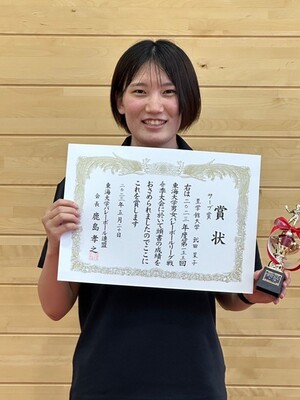 賞状
サーブ賞
右は二〇二三年度第一五二回
東海大学男女バレーボールリーグ戦
春季大会に於いて頭書の成績を
おさめられましたのでここに
これを賞します
二〇二三年五月二十日
東海大学バレーボール連盟
会長 鹿島孝之